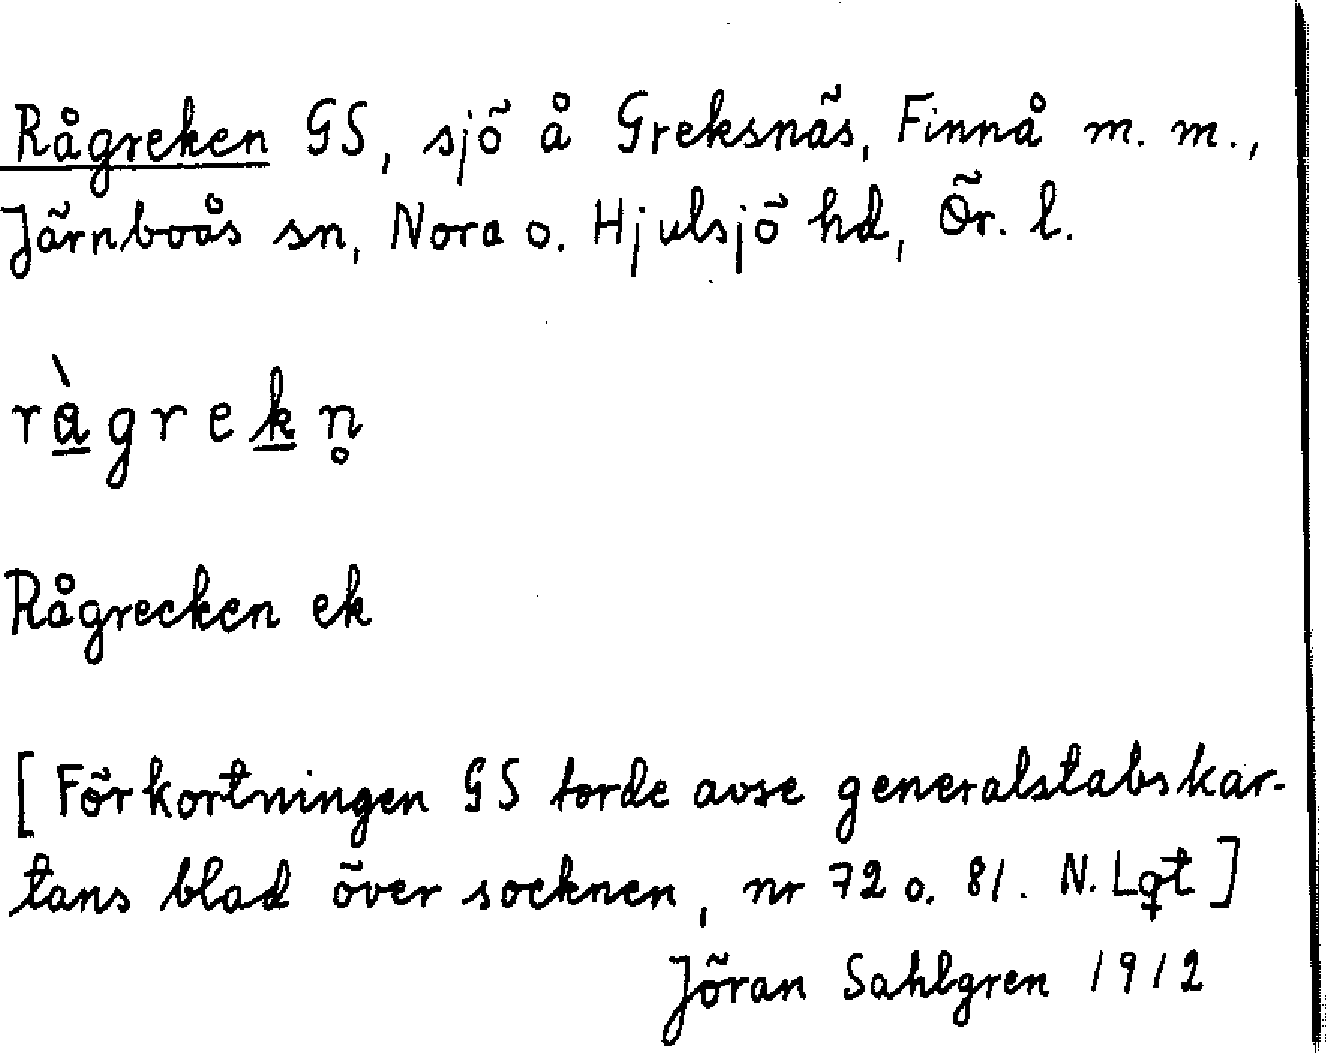 Rågreken GS, sjö å Greksnäs, Finnå m. m.,
Järnboås sn, Nora o. Hjulsjö hd, Ör. l.
ràgrekn̥
Rågrecken ek
[Förkortningen GS torde avse generalstabskar-
tans blad över socknen, nr 72 o. 81. N. Lqt]
Jöran Sahlgren 1912